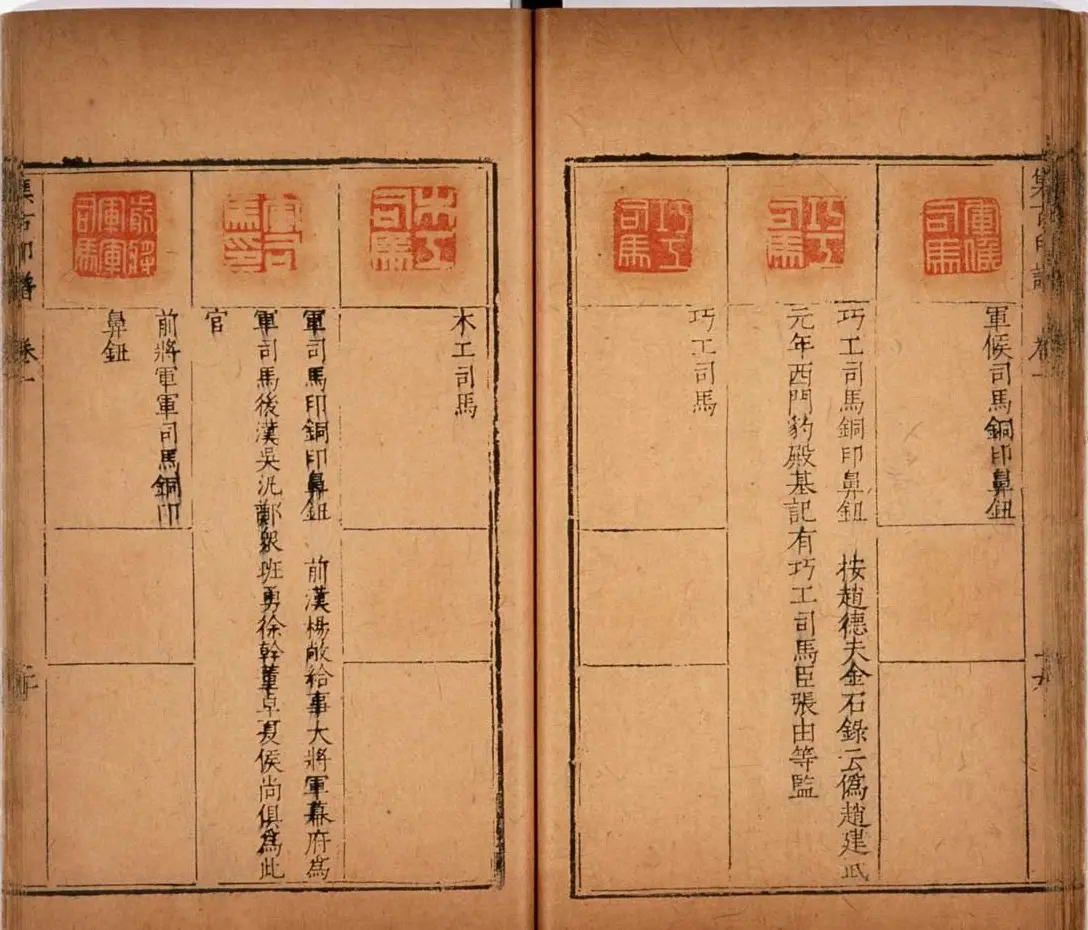 集古印譜 卷一
軍候司馬
軍候司馬銅印鼻鈕
巧工司馬
巧工司馬銅印鼻鈕 桉趙德夫金石錄云偽趙建武
元年西門豹殿基記有巧工司馬臣張由等監
巧工司馬
巧工司馬
木工司馬
木工司馬
軍司馬印
軍司馬印銅印鼻鈕 前漢楊敞給事大將軍幕府為
軍司馬後漢吳汎鄭衆班勇徐幹董卓夏侯尚俱為此
官
前將軍軍司馬
前將軍軍司馬銅印
鼻鈕
集古印譜 卷一